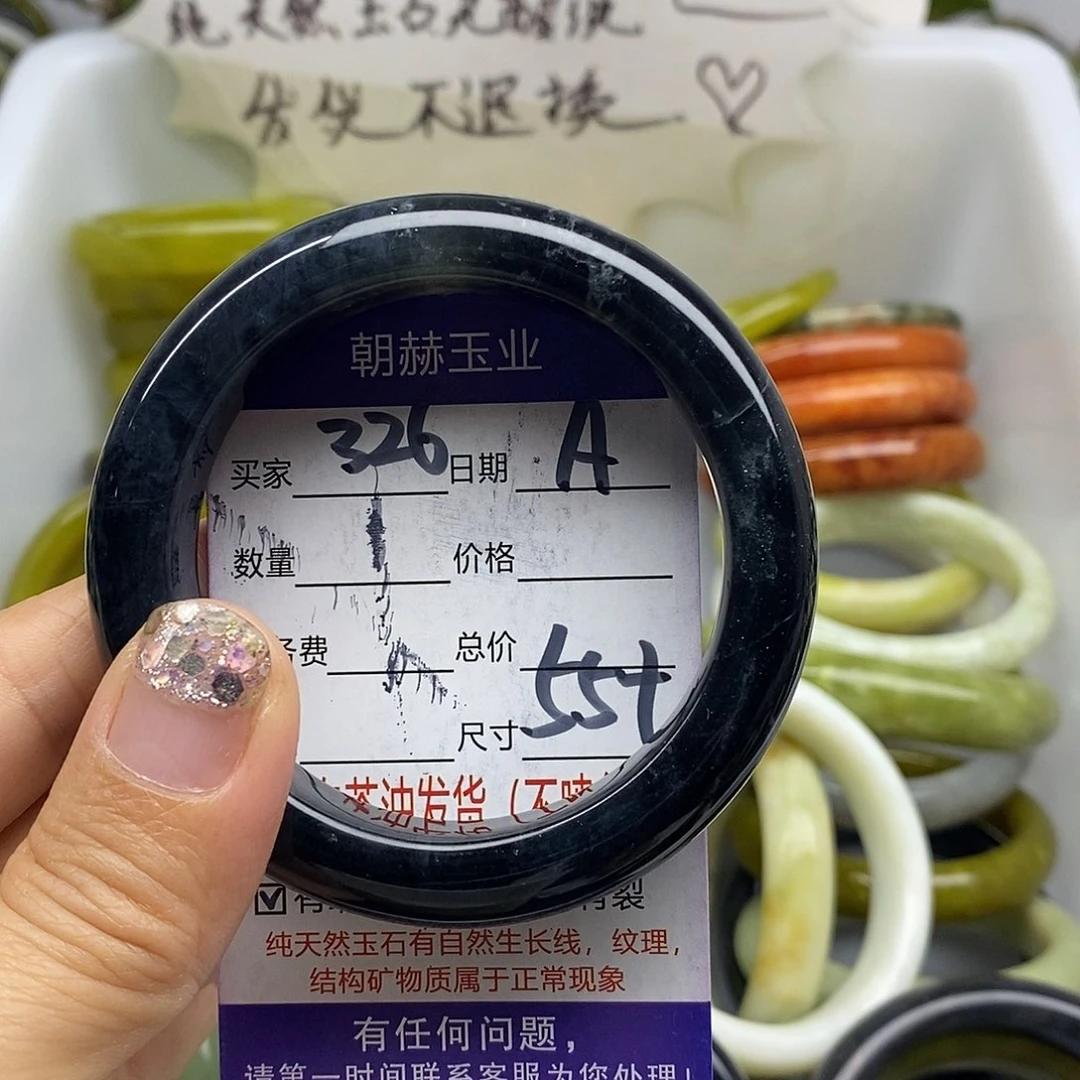 纯天然玉石无瑕疵
售出不退换
朝赫玉业
买家 326 日期 A
数量 价格
务费 总价
尺寸 55t
茶油发货（不喷
☑有
纯天然玉石有自然生长线，纹理，
结构矿物质属于正常现象
有任何问题，
请第一时间联系客服为您处理！